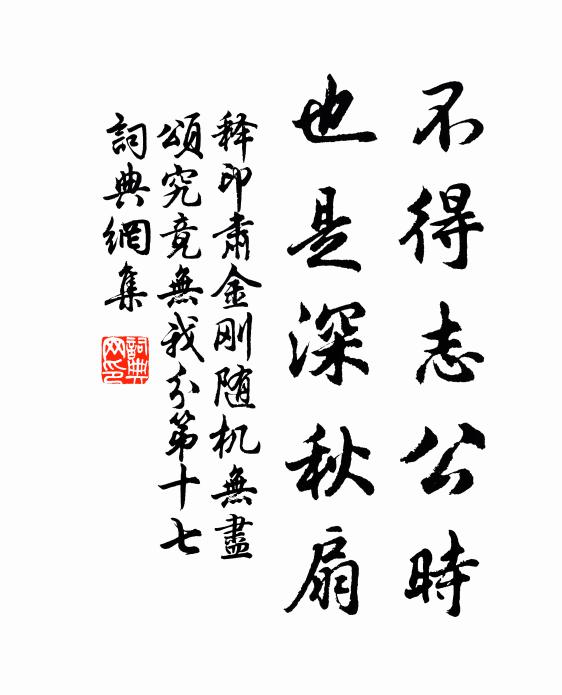 不得志公時
也是深秋扇
释印肃金刚随机無盡
頌究竟無我分第十七
詞典網集
詞典網印